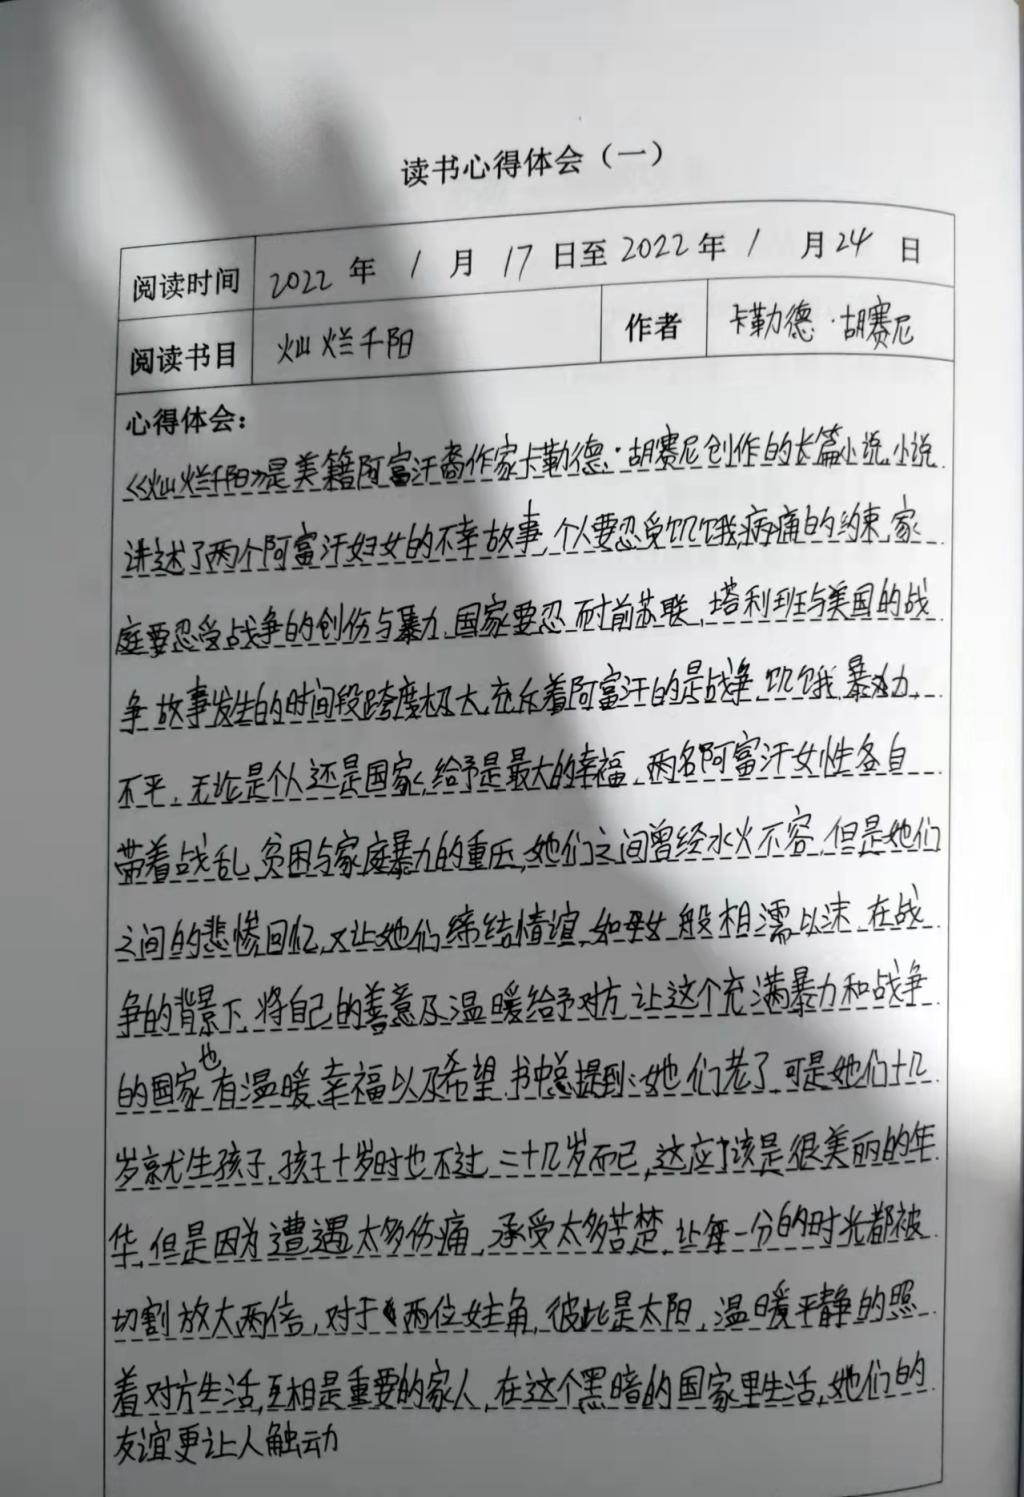 读书心得体会（一）
阅读时间 2022 年 1 月 17 日至 2022 年 1 月 24 日
阅读书目 灿烂千阳 作者 卡勒德·胡赛尼
心得体会：
《灿烂千阳》是美籍阿富汗裔作家卡勒德·胡赛尼创作的长篇小说,小说
讲述了两个阿富汗妇女的不幸故事,个人要忍受饥饿,病痛的约束,家
庭要忍受战争的创伤与暴力,国家要忍耐前苏联,塔利班与美国的战
争,故事发生的时间段跨度极大,充斥着阿富汗的是战争,饥饿,暴力,
不平,无论是个人还是国家,给予是最大的幸福,两名阿富汗女性各自
带着战乱,贫困与家庭暴力的重压,她们之间曾经水火不容,但是她们
之间的悲惨回忆,又让她们缔结情谊,如母女般相濡以沫,在战
争的背景下,将自己的善意及温暖给予对方,让这个充满暴力和战争
的国家也有温暖,幸福以及希望.书中总提到:她们老了,可是她们十几
岁就生孩子,孩子十岁时也不过二十几岁而已,这应该是很美丽的年
华,但是因为遭遇太多伤痛,承受太多苦楚,让每一分的时光都被
切割放大两倍,对于两位女主角,彼此是太阳,温暖平静的照
着对方生活,互相是重要的家人,在这个黑暗的国家里生活,她们的
友谊更让人触动